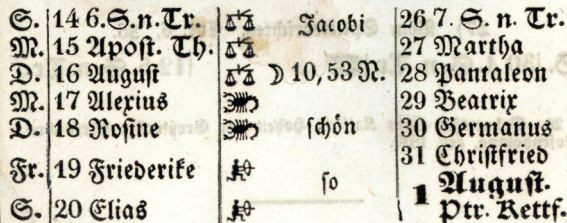 S. 14 6. S. n. Tr. Jacobi 26 7. S. n. Tr.
M. 15 Apoſt. Th. 27 Martha
D. 16 Auguſt ☽ 10,53 N. 28 Pantaleon
M. 17 Alexius 29 Beatrix
D. 18 Roſine ſchön 30 Germanus
31 Chriſtfried
Fr. 19 Friederike ſo 1 Auguſt.
S. 20 Elias Ptr. Kettf.